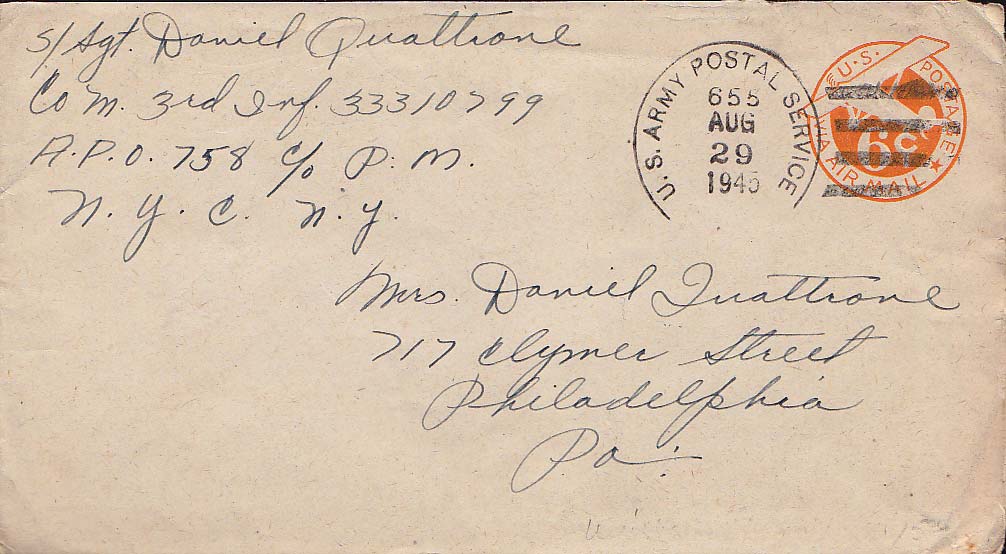 S/Sgt. Daniel Quattrone
Co M. 3rd Inf. 33310799
A.P.O. 758 c/o P.M.
N.Y.C. N.Y.
U.S. ARMY POSTAL SERVICE
655
AUG
29
1945
U.S. POSTAGE
VIA AIR MAIL
6c
Mrs. Daniel Quattrone
717 Clymer Street
Philadelphia
Pa.